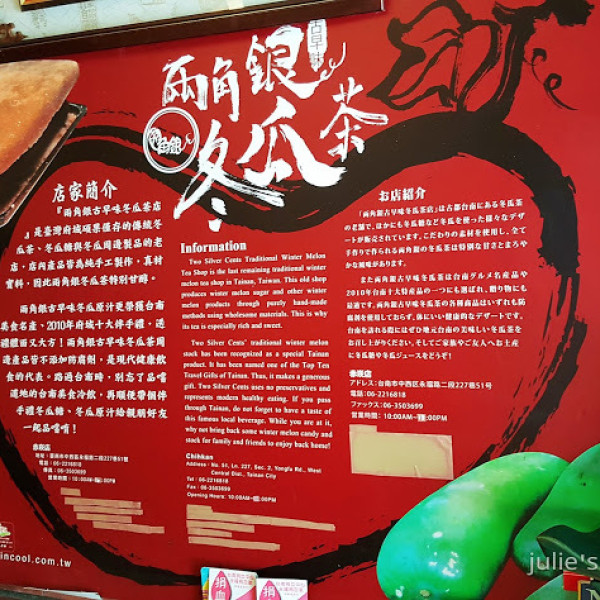 古早味
兩角銀
冬瓜茶
店家簡介
『兩角銀古早味冬瓜茶店
』是臺灣府城碩果僅存的傳統冬
瓜茶、冬瓜糖與冬瓜周邊製品的老
店，店內產品皆為純手工製作，真材
實料，因此兩角銀冬瓜茶特別甘醇。
兩角銀古早味冬瓜原汁更榮獲台南
美食名產，2010年府城十大伴手禮，送
禮體面又大方！兩角銀古早味冬瓜茶周
邊產品皆不添加防腐劑，是現代健康飲
食的代表。路過台南時，別忘了品嚐
道地的台南美食冷飲，再順便帶個伴
手禮冬瓜糖、冬瓜原汁給親朋好友
一起品嚐唷！
赤崁店
地址：臺南市中西區永福路二段227巷51號
電話：06-2216818
傳真：06-3503699
營業時間：10:00AM~
Information
Two Silver Cents Traditional Winter Melon
Tea Shop is the last remaining traditional winter
melon tea shop in Tainan, Taiwan. This old shop
produces winter melon sugar and other winter
melon products through purely hand-made
methods using wholesome materials. This is why
its tea is especially rich and sweet.
Two Silver Cents' traditional winter melon
stack has been recognized as a special Tainan
product. It has been named one of the Top Ten
Travel Gifts of Tainan. Thus, it makes a generous
gift. Two Silver Cents uses no preservatives and
represents modern healthy eating. If you pass
through Tainan, do not forget to have a taste of
this famous local beverage. While you are at it,
why not bring some winter melon candy and
stock for family and friends to enjoy back home!
Chihkan
Address : No. 51, Ln. 227, Sec. 2, Yongfu Rd., West
Central Dist., Tainan City
Tel : 06-2216818
Fax : 06-3503699
Opening Hours: 10:00AM~ :00PM
お店紹介
「両角銀古早味冬瓜茶店」は古都台南にある冬瓜茶
の老舗で、ほかにも冬瓜糖など冬瓜を使った様々なデザ
ートが販売されています。こだわりの素材を使用し、全て
手作りで作られる両角銀の冬瓜茶は特別な甘さとまろや
かな風味があります。
また両角銀古早味冬瓜茶は台南グルメ名産品や
2010年台南十大特産品の一つにも選ばれ、贈り物にも
最適です。両角古早味冬瓜茶の各種商品はいずれも防
腐剤を使用しておらず、体にいい健康的なデザートです。
台南を訪れる際にはぜひ地元台南の美味しい冬瓜茶を
お召し上がりください。そしてご家族やご友人へお土産
に冬瓜糖や冬瓜ジュースをどうぞ！
赤崁店
アドレス：台南市中西区永福路二段227巷51号
電話：06-2216818
ファックス：06-3503699
営業時間：10:00AM~ :00PM
incool.com.tw
julie's